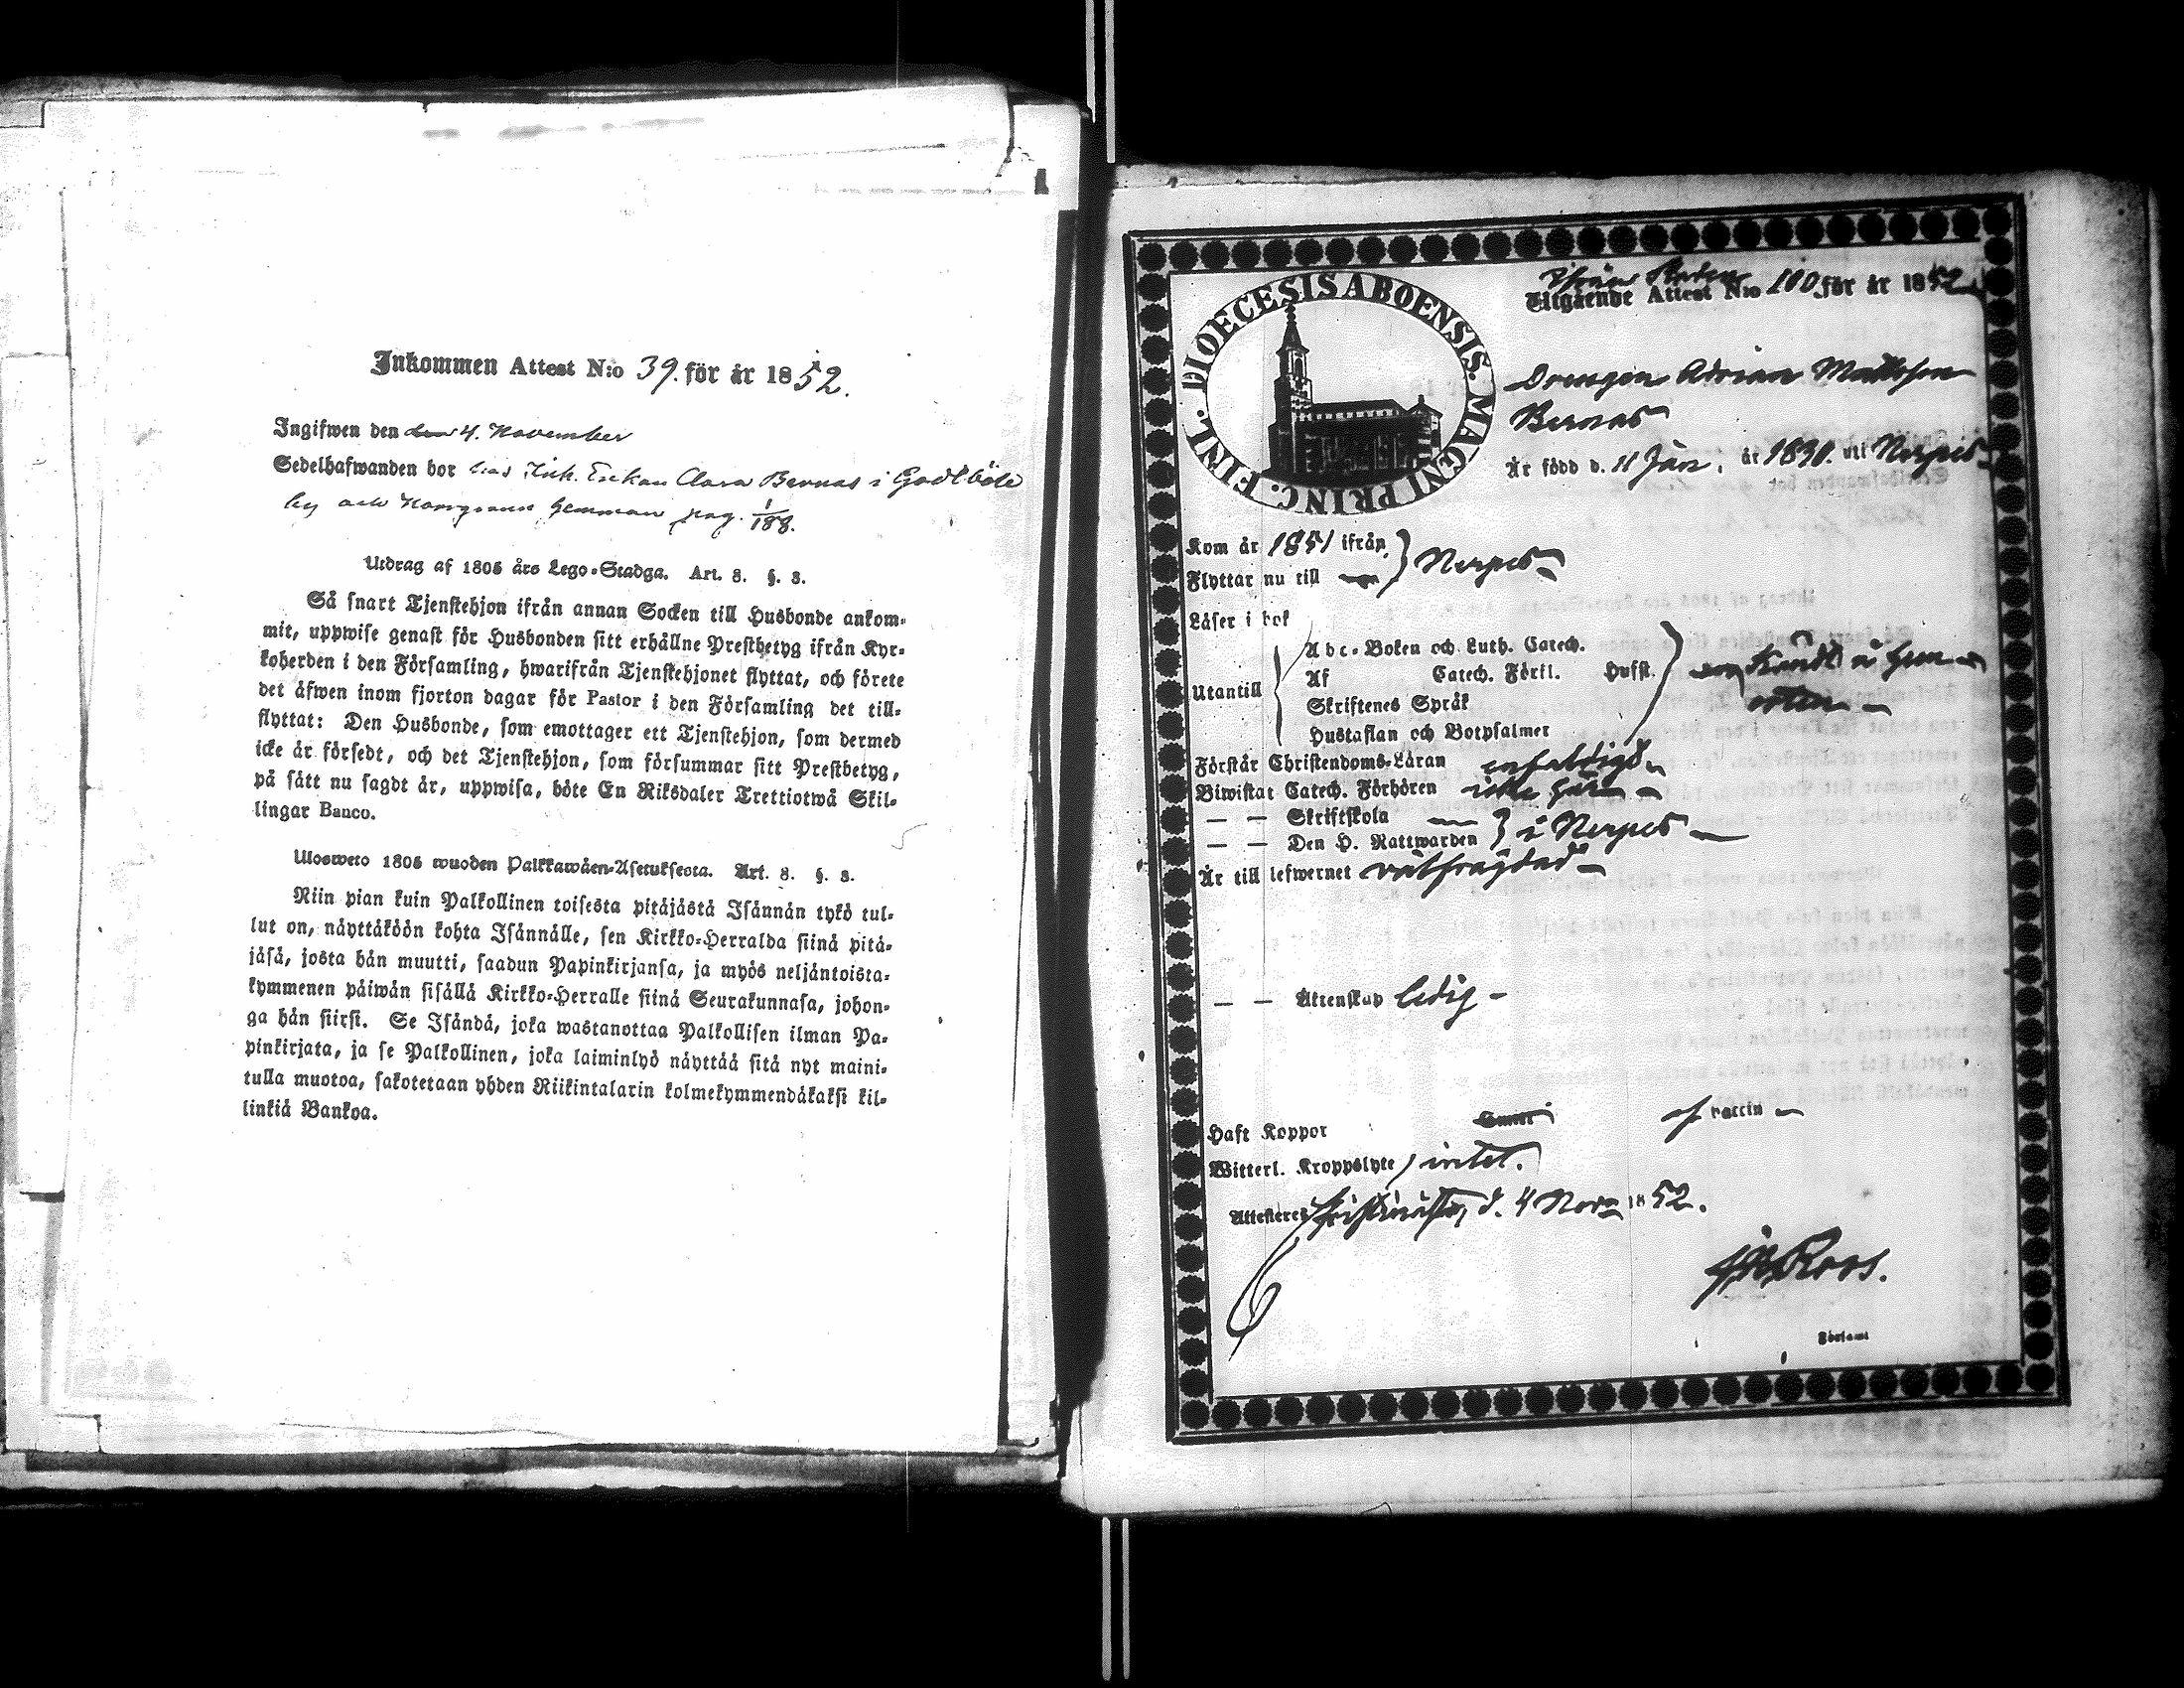 Inkommen Attest N:o 39. för år 1852.
Ingifwen den den 4. November
Sedelhafwanden bor hos Enkan Clara Bernas i Gottböle
by och hemman pag. 1/188.
Utdrag af 1805 års Lego-Stadga. Art. 8. §. 3.
Så snart Tjenstehjon ifrån annan Socken till Husbonde ankom-
mit, uppwise genast för Husbonden sitt erhållne Prestbetyg ifrån Kyr-
koherden i den Församling, hwarifrån Tjenstehjonet flyttat, och förete
det äfwen inom fjorton dagar för Pastor i den Församling det till-
flyttat: Den Husbonde, som emottager ett Tjenstehjon, som dermed
icke är försedt, och det Tjenstehjon, som försummar sitt Prestbetyg,
på sätt nu sagdt är, uppwisa, böte En Riksdaler Trettiotwå Skil-
lingar Banco.
Ulosweto 1805 wuoden Palkkawäen-Asetuksesta. Art. 8. §. 3.
Niin pian kuin Palkollinen toisesta pitäjästä Isännän tykö tul-
lut on, näyttäköön kohta Isännälle, sen Kirkko-Herralda siinä pitä-
jäsä, josta hän muutti, saadun Papinkirjansa, ja myös neljäntoista-
kymmenen päiwän sisällä Kirkko-Herralle siinä Seurakunnasa, johon-
ga hän siirsi. Se Isändä, joka wastanottaa Palkollisen ilman Pa-
pinkirjata, ja se Palkollinen, joka laiminlyö näyttää sitä nyt maini-
tulla muotoa, sakotetaan yhden Riikintalarin kolmekymmendäkaksi kil-
linkiä Bankoa.
DIOECESIS ABOENSIS. MAGNI PRINC. FINL.
Utgående Attest N:o 100 för år 1852
Drengen Adrian Mattsson
Bernas
Är född d. 11 Jan. år 1830. uti Nerpes
Kom år 1851 ifrån } Nerpes
Flyttar nu till
Läser i bok
Abc-Boken och Luth. Catech.
Af Catech. Förkl. Husfl.
Utantill
Skriftenes Språk
Hustaflan och Botpsalmer
Förstår Christendoms-Läran enfaldigt
Biwistat Catech. Förhören icke här
— — Skriftskola
— — Den H. Nattwarden } i Nerpes
Är till lefwernet välfrägdad
— — Äktenskap ledig
Haft Koppor
Witterl. Kroppslyte intet.
Attesteres Christinestad, d. 4 Nov. 1852.
Roos.